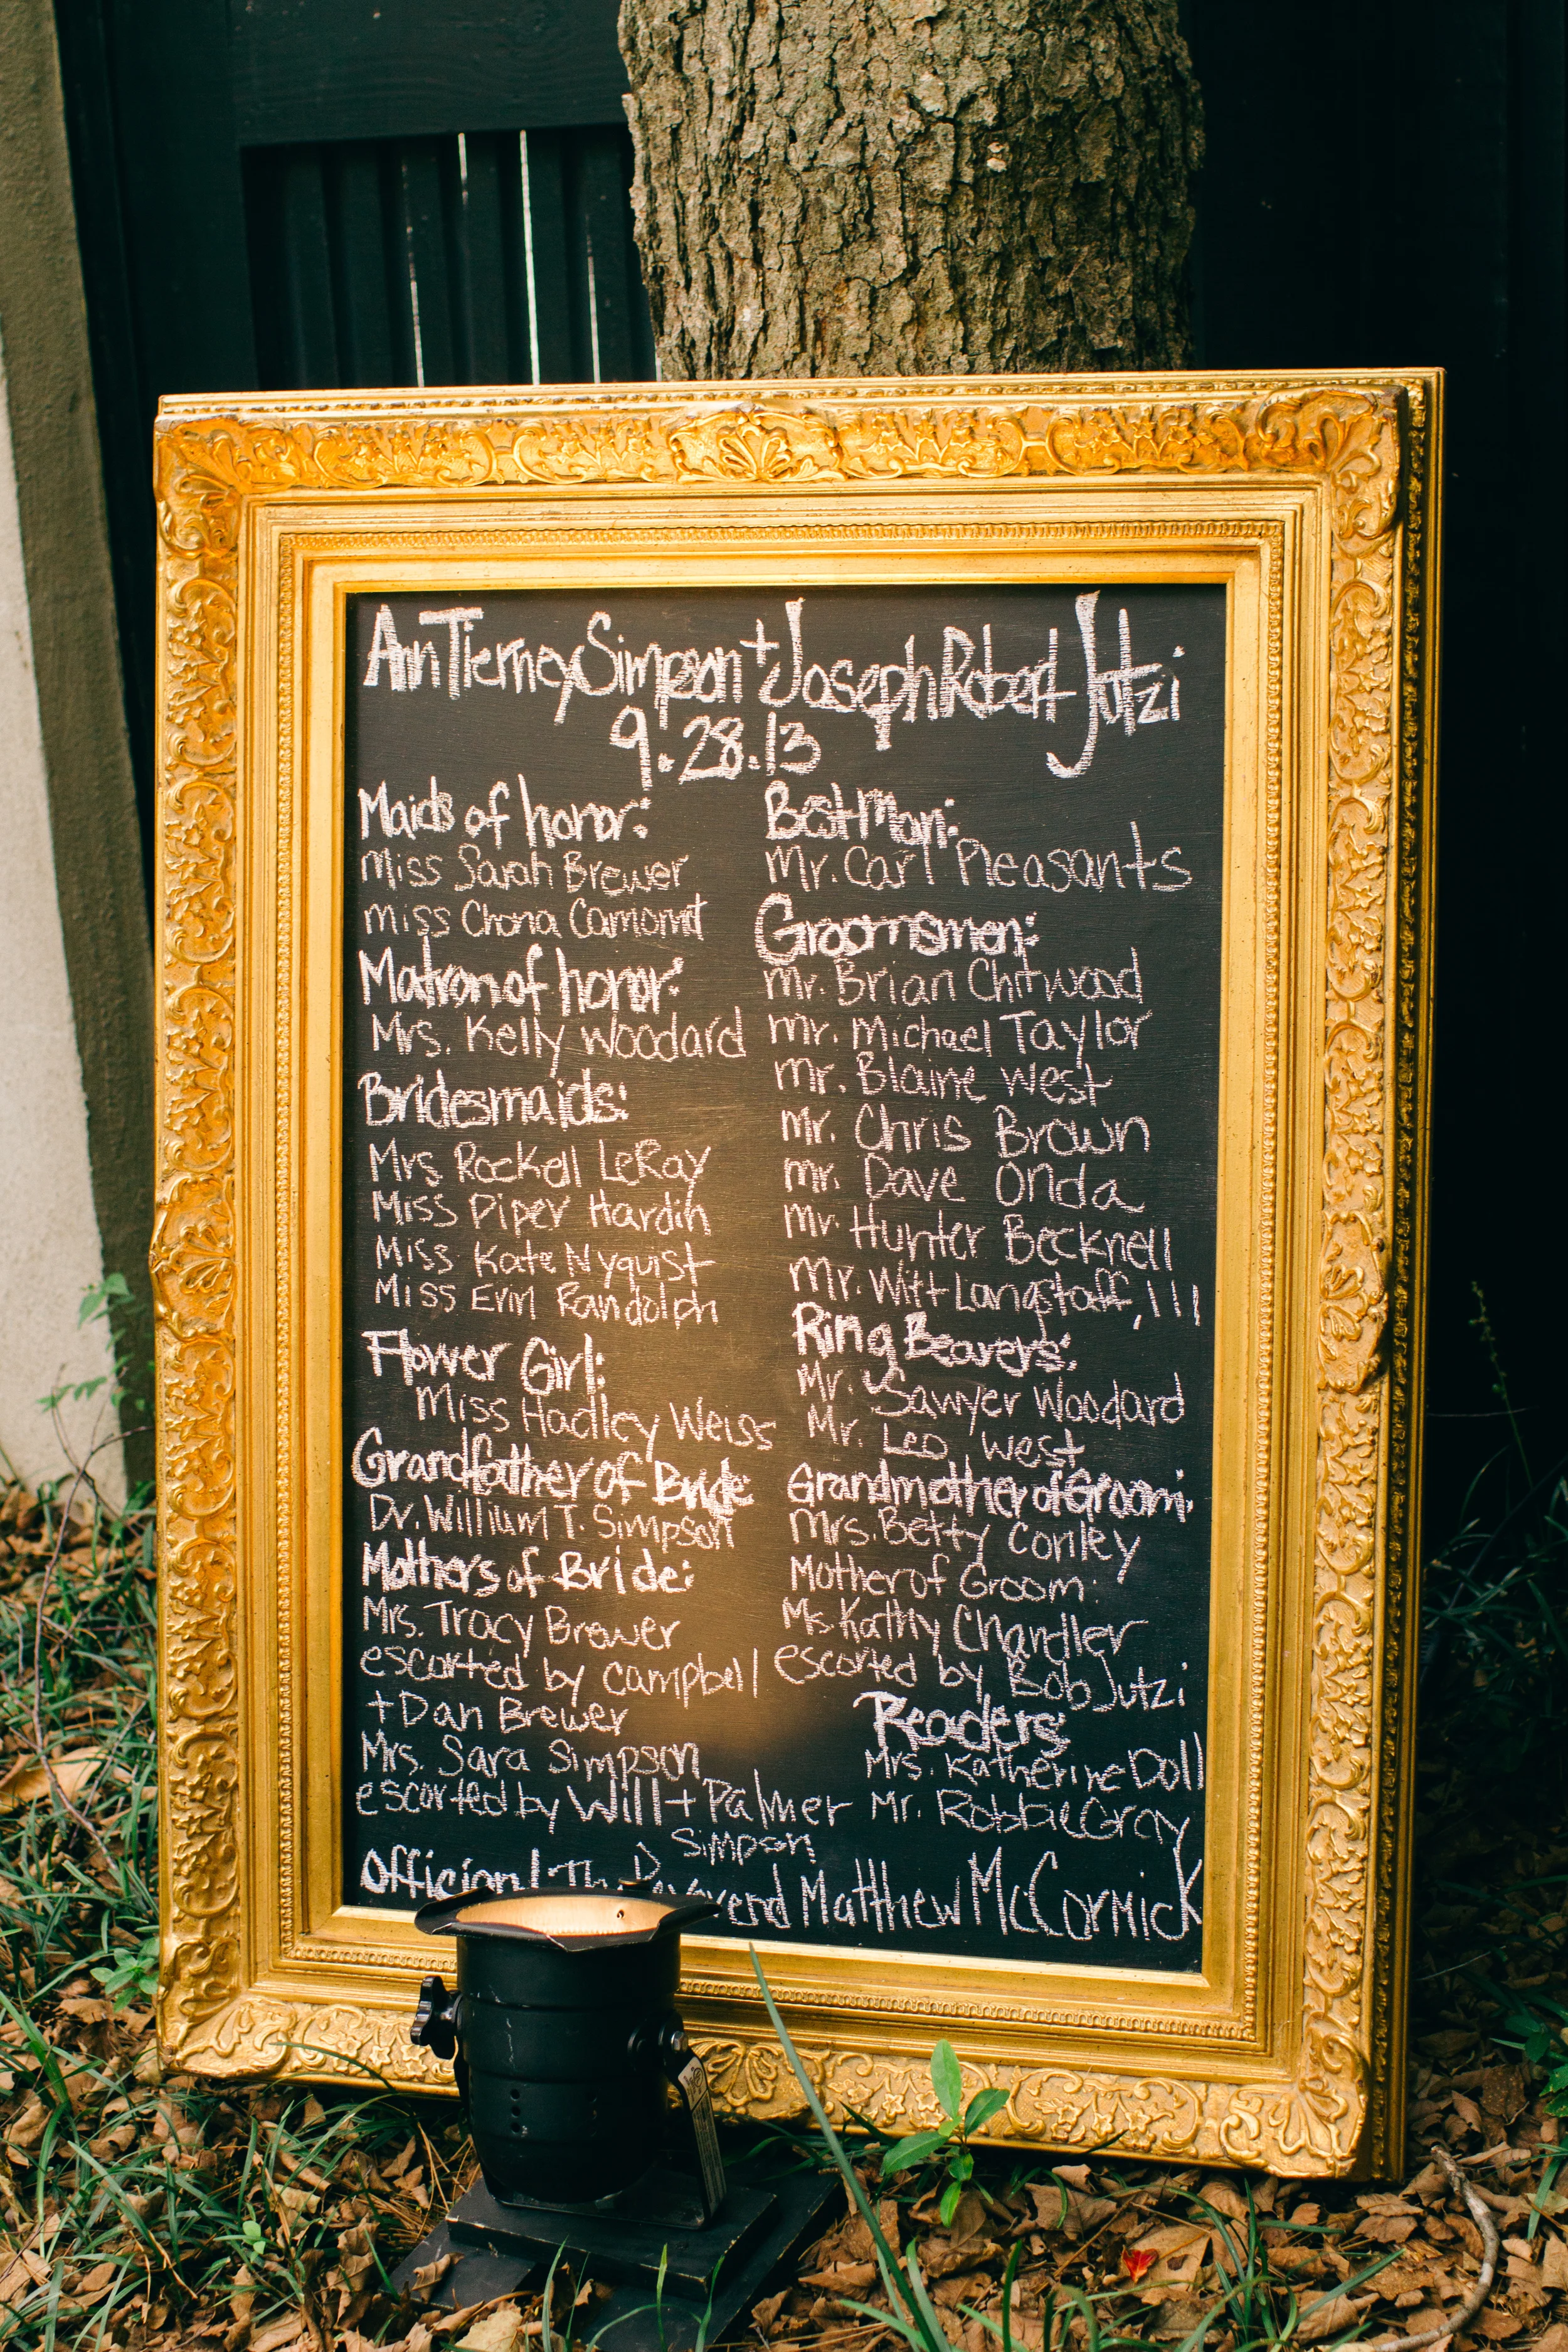 Ann Tierney Simpson + Joseph Robert Jutzi
9.28.13
Maids of honor:
Miss Sarah Brewer
Miss Chona
Matron of honor:
Mrs. Kelly Woodard
Bridesmaids:
Mrs Rockell LeRay
Miss Piper Hardin
Miss Kate Nyquist
Miss Erin Randolph
Flower Girl:
Miss Hadley Weiss
Grandfather of Bride
Dr. William T. Simpson
Mothers of Bride:
Mrs. Tracy Brewer
escorted by Campbell
+ Dan Brewer
Mrs. Sara Simpson
escorted by Will + Palmer
Simpson
Best Man:
Mr. Carl Pleasants
Groomsmen:
Mr. Brian Chitwood
Mr. Michael Taylor
Mr. Blaine West
Mr. Chris Brown
Mr. Dave Onda
Mr Hunter Becknell
Mr. Witt Langstaff, III
Ring Bearers:
Mr. Sawyer Woodard
Mr. Leo West
Grandmother of Groom:
Mrs. Betty Conley
Mother of Groom:
Ms Kathy Chandler
escorted by Bob Jutzi
Readers:
Mrs. Katherine Doll
Mr. Robbie Gray
Reverend Matthew McCormick